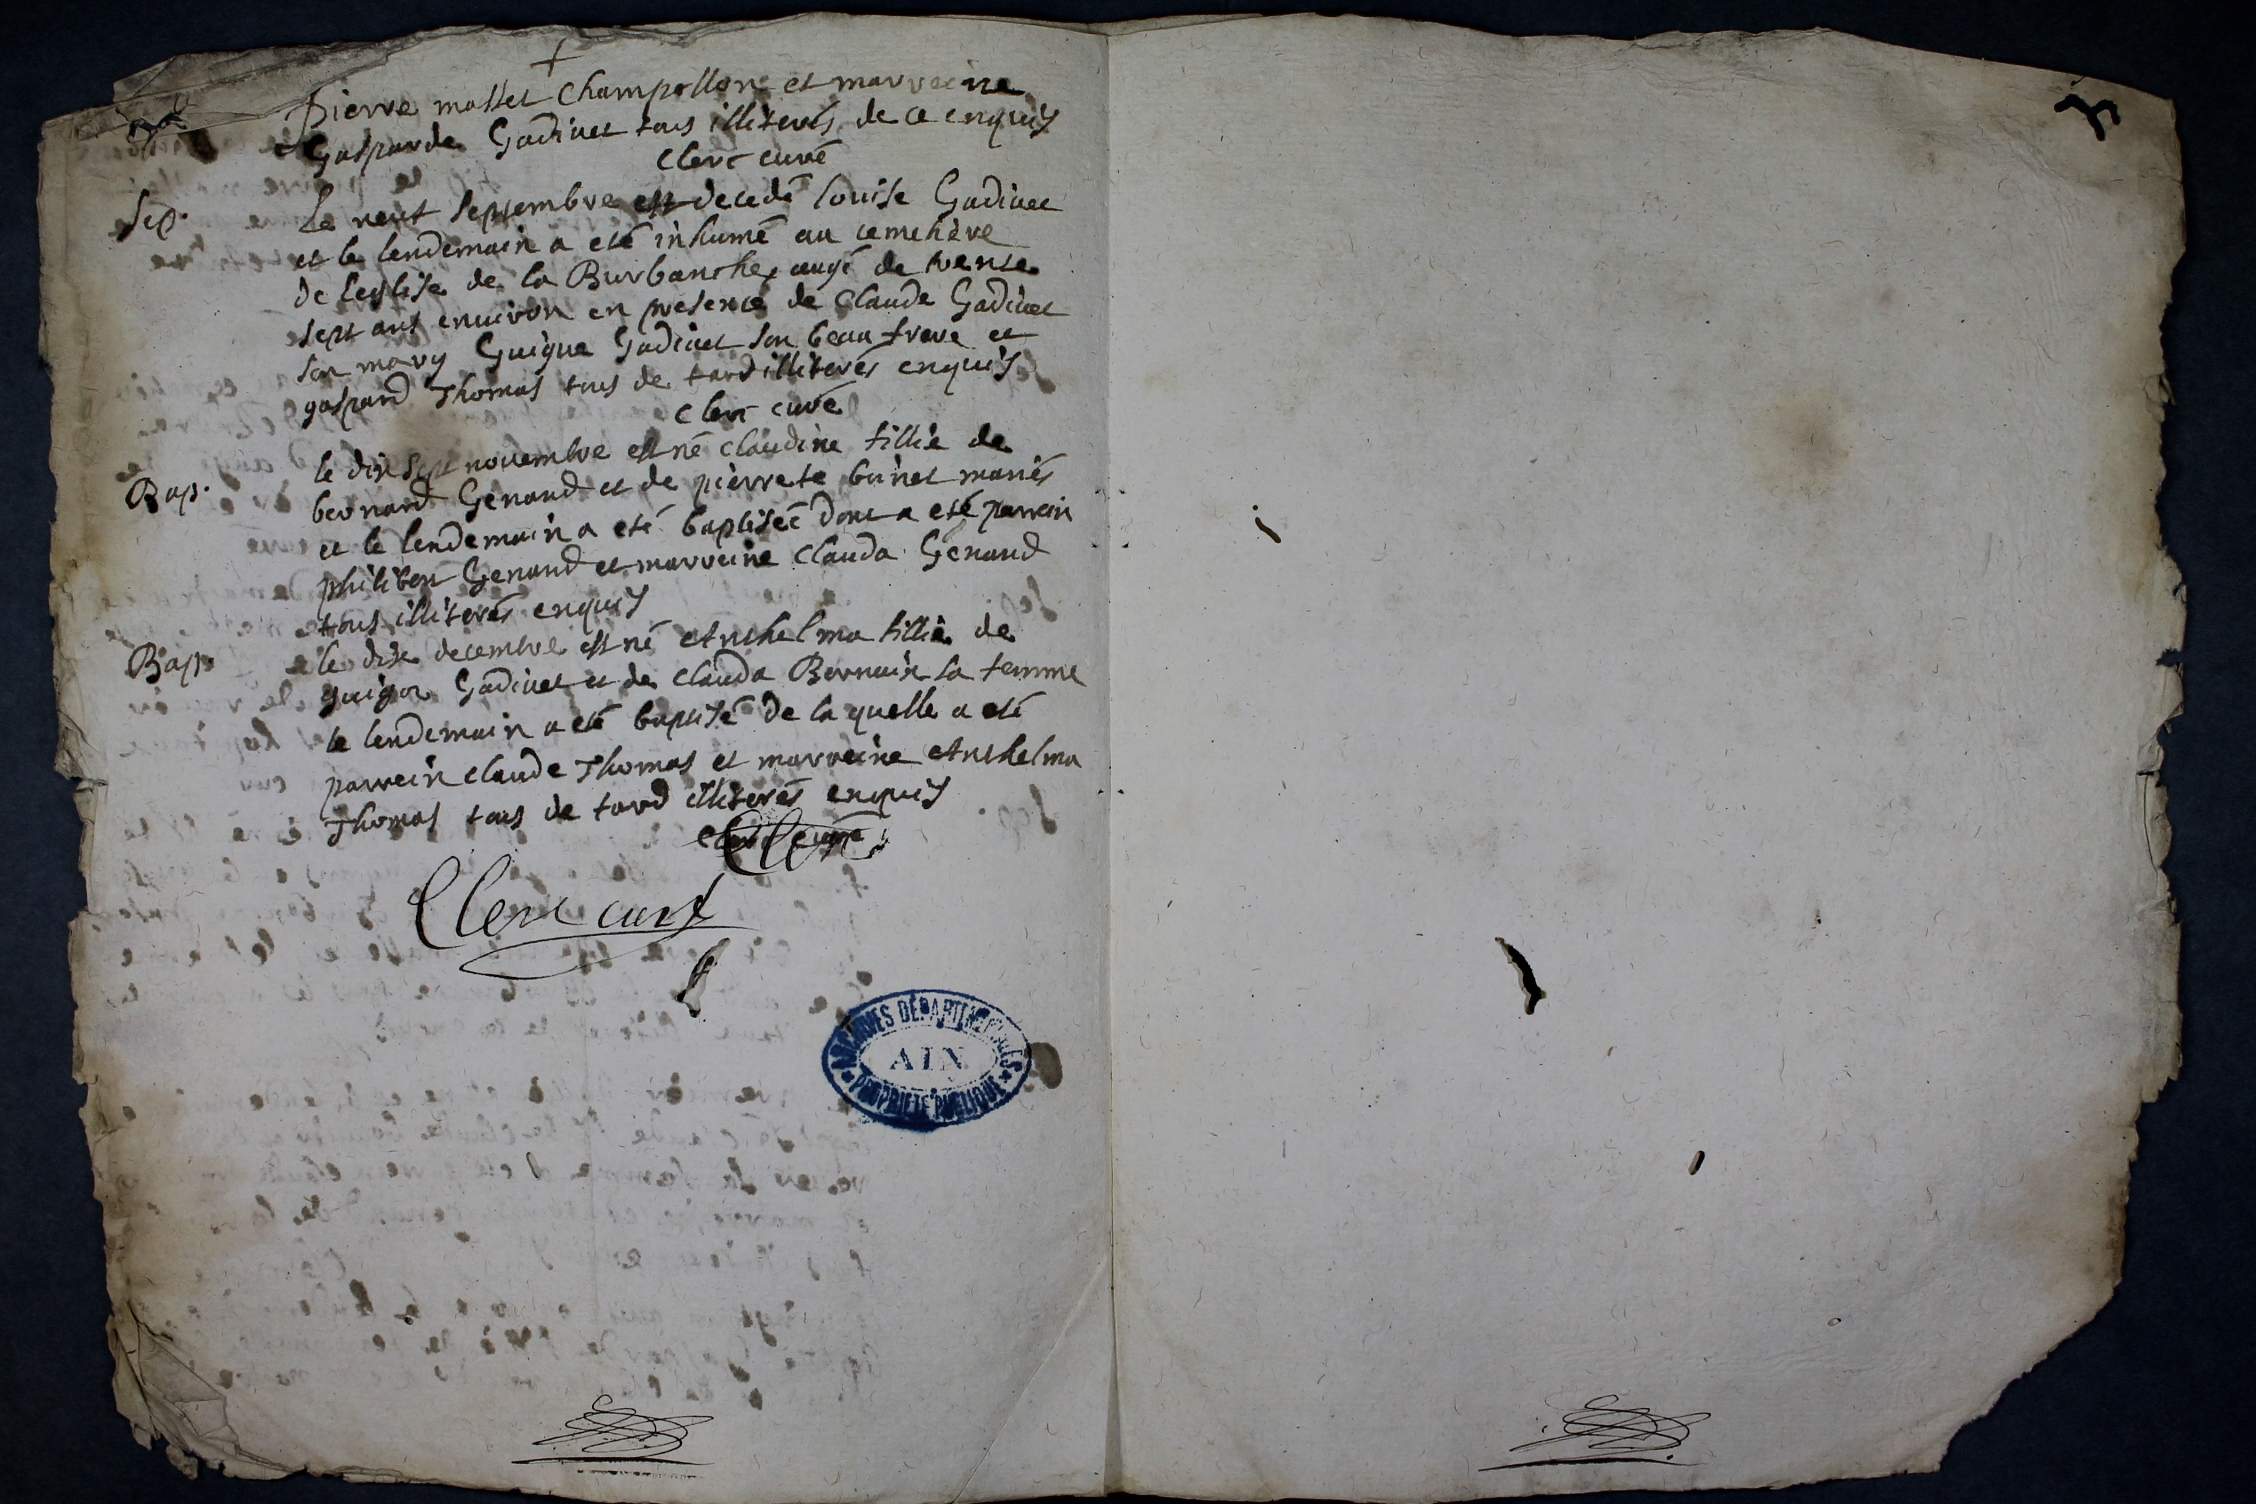 Pierre mollet Champollon et marreine
Gasparde Gadivet tous illiterés de ce enquis
Clerc curé
Sep.
Le neuf septembre est decedé Louise Gadivet
et le lendemain a eté inhumé au cemetiere
de leglise de la Burbanche, augé de trente
sept ans environ en presence de Claude Gadivet
son mary Guigue Gadivet son beau frere et
gaspard Thomas tous de tard illiterés enquis
Clerc curé
Bap.
le dix sept novembre est né Claudine fillie de
bernard Genand et de pierrete binet mariés
et le lendemain a eté baptiseé dont a eté parrein
philibert Genand et marreine Clauda Genand
tous illiterés enquis
Bap.
le dix decembre est né Anthelma fillie de
guigoz Gadivet et de Clauda Bernain sa femme
le lendemain a eté baptisé de la quelle a eté
parrein Claude Thomas et marreine Anthelma
Thomas tous de tard illiterés enquis
Clerc curé
Clerc curé
ARCHIVES DÉPARTEMENTALES
AIN
PROPRIÉTÉ PUBLIQUE